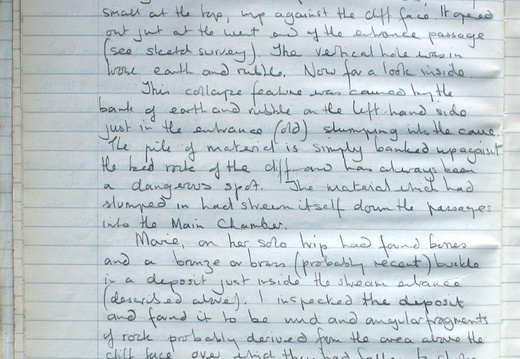 small at the top, up against the cliff face. It opened
out just at the west end of the entrance passage
(see sketch survey). The vertical hole was in
loose earth and rubble. Now for a look inside
This collapse feature was caused by the
bank of earth and rubble on the left hand side
just in the entrance (old) slumping into the cave.
The pile of material is simply banked up against
the bed rock of the cliff and has always been
a dangerous spot. The material which had
slumped in had strewn itself down the passages
into the Main Chamber.
Marie, on her solo trip had found bones
and a bronze or brass (probably recent) buckle
in a deposit just inside the stream entrance
(described above). I inspected the deposit
and found it to be mud and angular fragments
of rock probably derived from the area above the
cliff face over which they had fallen